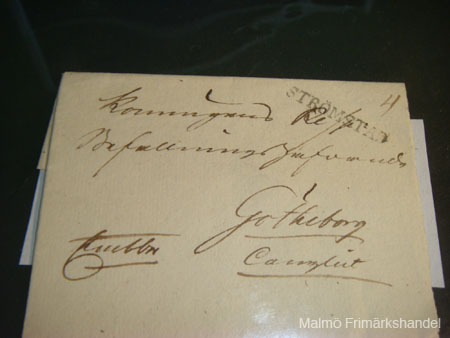 STRÖMSTAD
4
Konungens Resp.
Befallningshafvande
Götheborg
Canzliet
Malmö Frimärkshandel